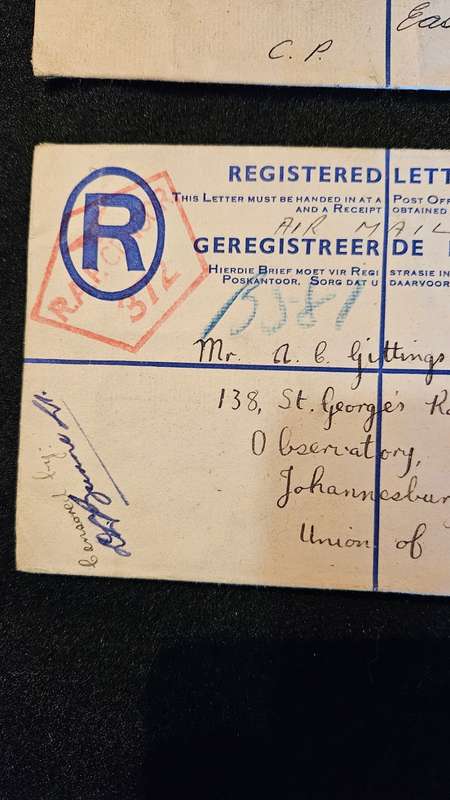 Eas
C. P.
R
REGISTERED LETT
THIS LETTER MUST BE HANDED IN AT A POST OFF
AND A RECEIPT OBTAINED
AIR MAIL
GEREGISTREERDE
HIERDIE BRIEF MOET VIR REGISTRASIE IN
POSKANTOOR. SORG DAT U DAARVOOR
312
Mr. A. C. Gittings
138, St. George's R
Observatory,
Johannesbur
Union of
Censored by: